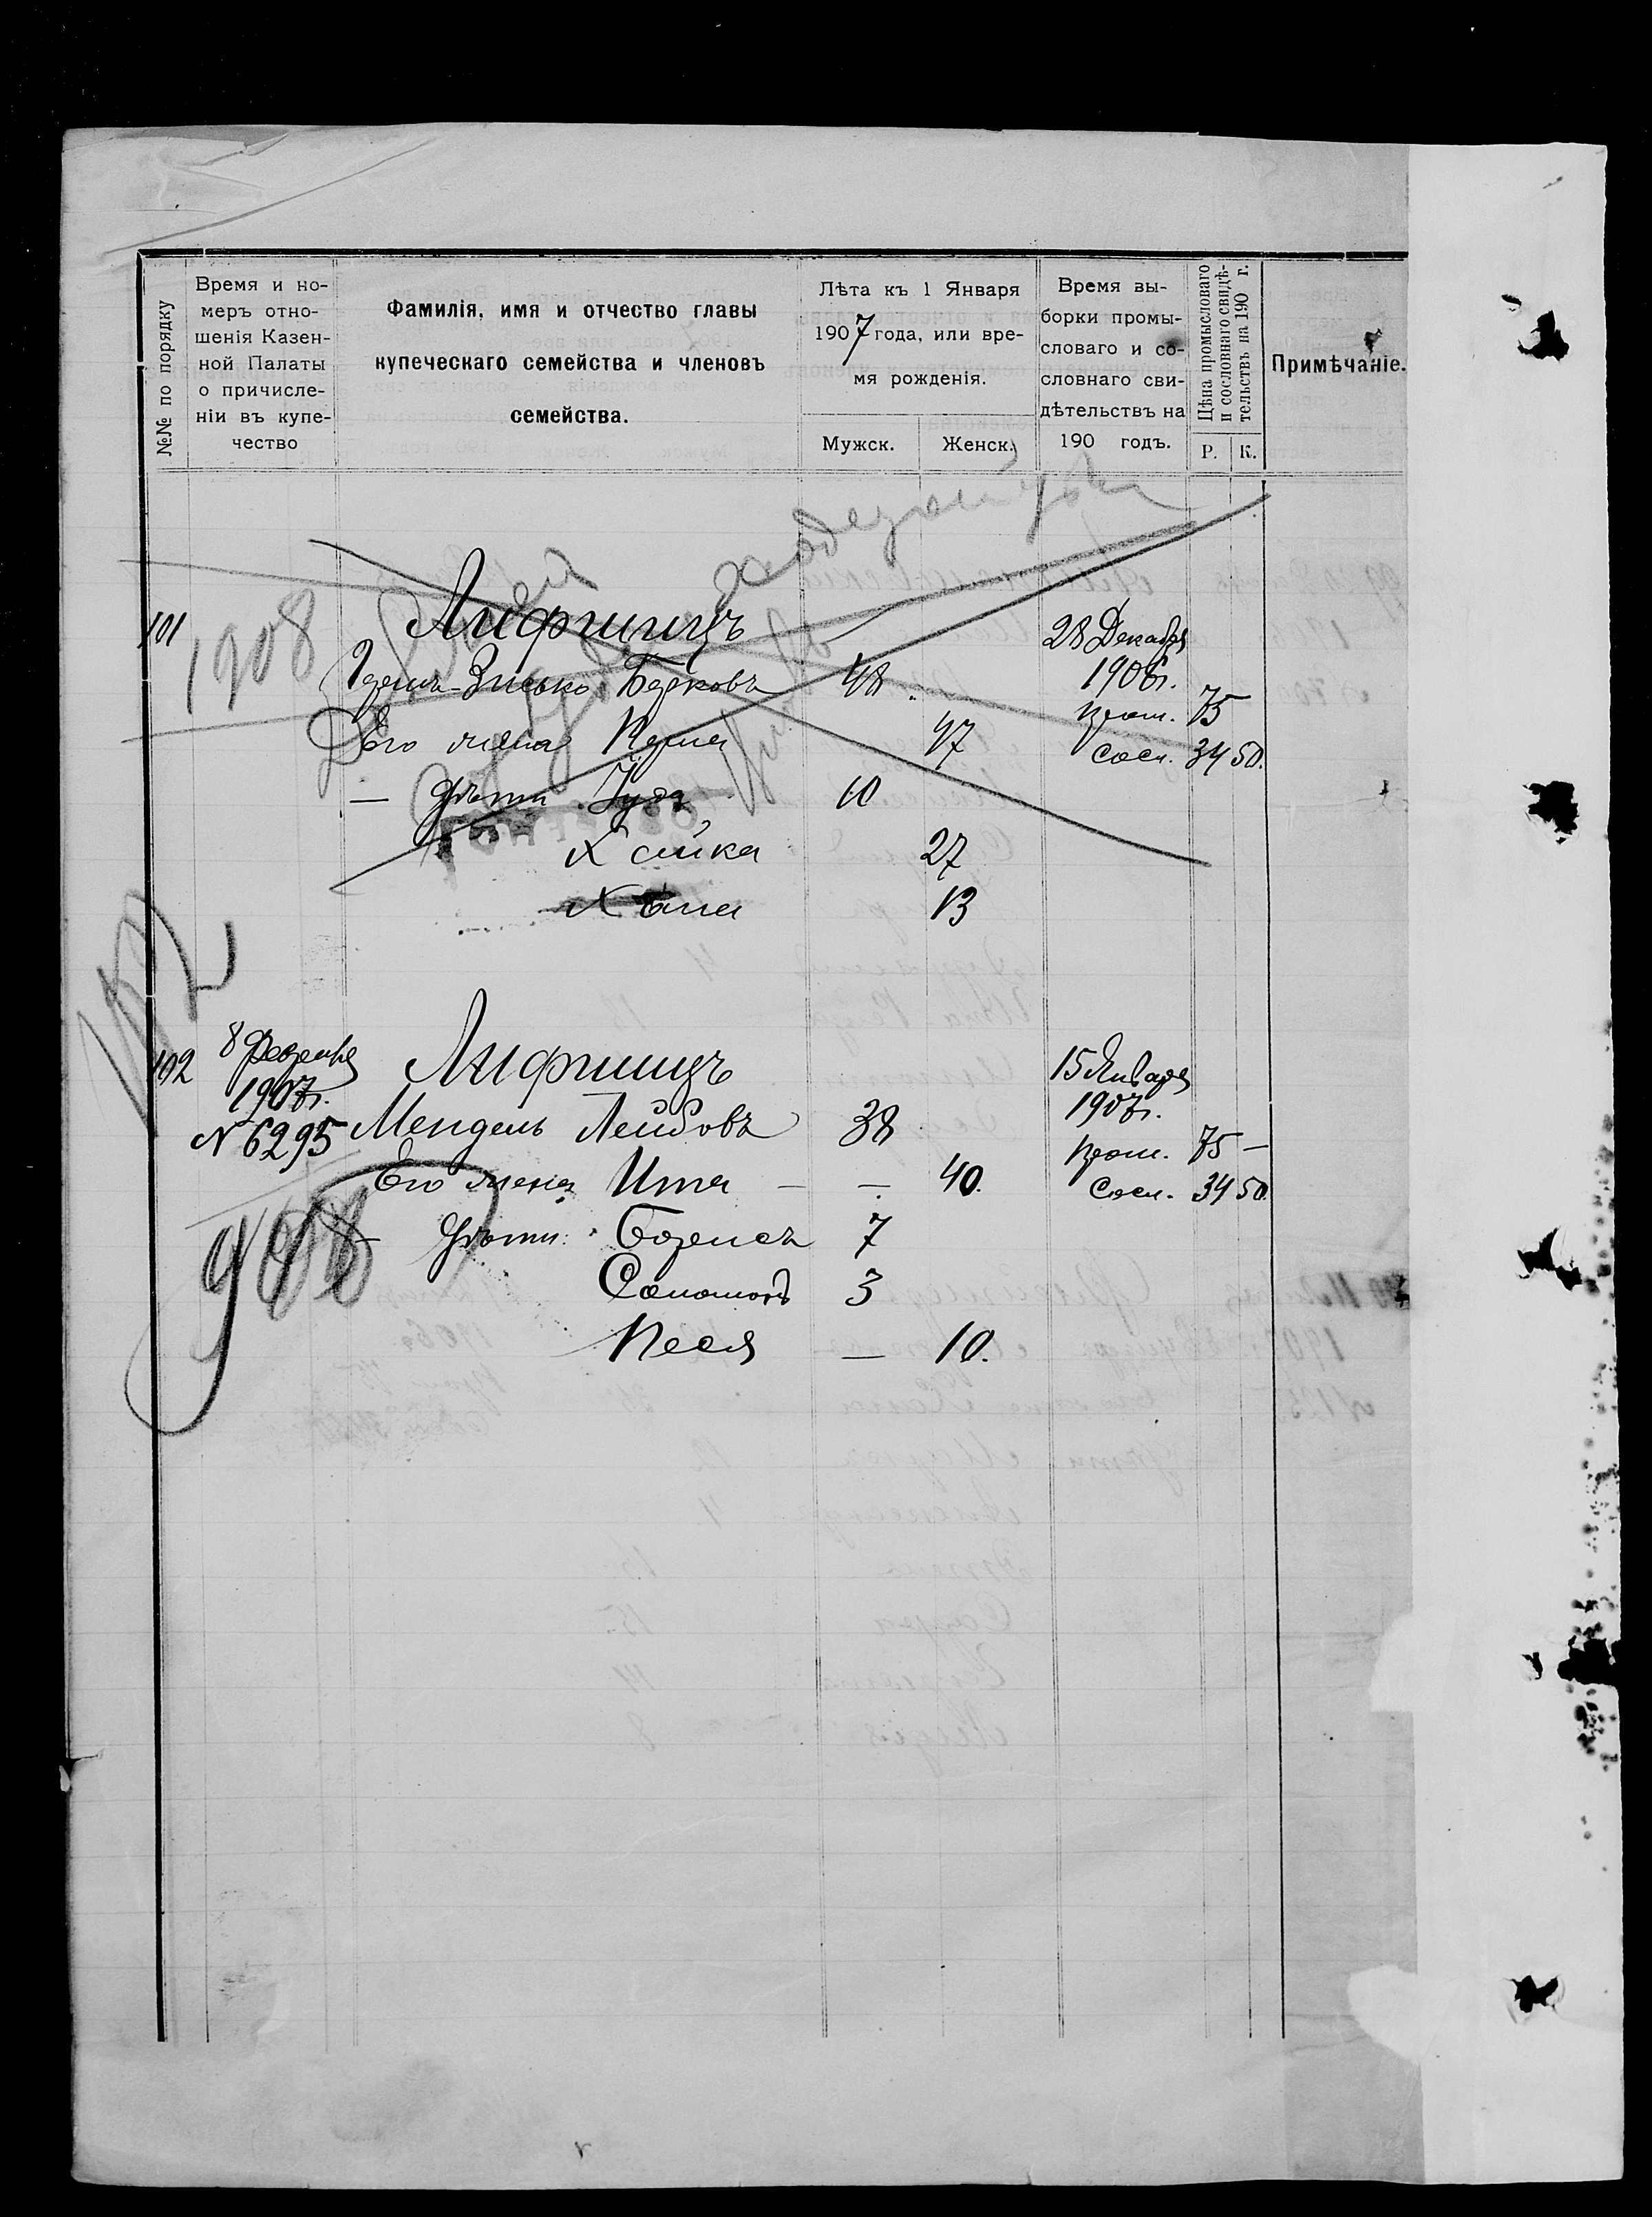 №№ по порядку
Время и но-
меръ отно-
шенія Казен-
ной Палаты
о причисле-
ніи въ купе-
чество
Фамилія, имя и отчество главы
купеческаго семейства и членовъ
семейства.
Лѣта къ 1 Января
1907 года, или вре-
мя рожденія.
Мужск.
Женск.
Время вы-
борки промы-
словаго и со-
словнаго сви-
дѣтельствъ на
190 годъ.
Цѣна промысловаго
и сословнаго свидѣ-
тельствъ на 190 г.
Р. К.
Примѣчаніе.
101 1908 Лифшицъ 28 Декабря
Зисько Берковъ 48. 1906 г.
пром. 75
Его жена 47
Сосл. 34 50.
— Дѣти Іуда 10
Хайка 27
Хана 13
102
102 8 Февраля Лифшицъ 15 Января
1907 г. 1907 г.
N 6295 Мендель Лейбовъ 38
пром. 75 —
Его жена Ита — — 40.
Сосл. 34 50.
908 — Дѣти: Борисъ 7
Соломонъ 3
Песя — 10.